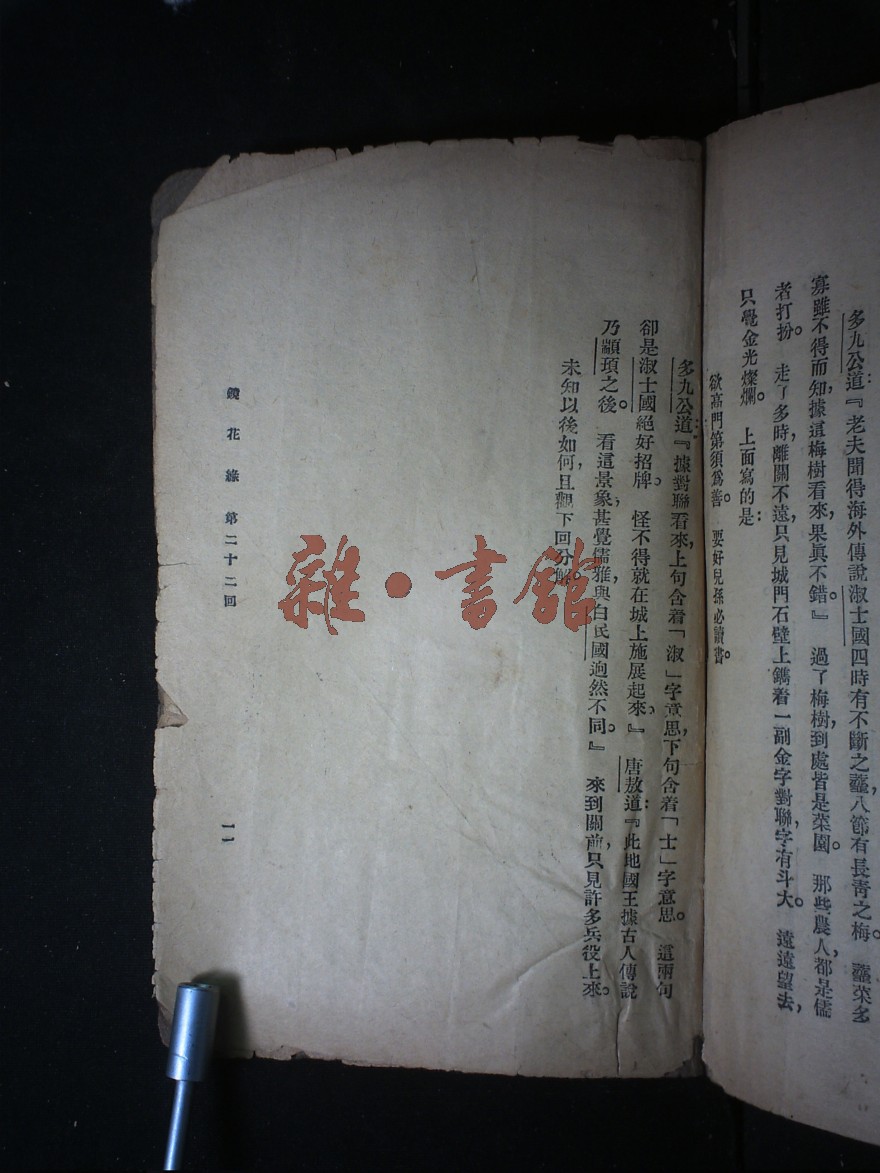 多九公道:『老夫聞得海外傳說淑士國四時有不斷之虀,八節有長青之梅。虀菜多
寡雖不得而知,據這梅樹看來,果眞不錯。』過了梅樹,到處皆是菜園。那些農人都是儒
者打扮。走了多時,離關不遠,只見城門石壁上鐫着一副金字對聯,字有斗大。遠遠望去,
只覺金光燦爛。上面寫的是:
欲高門第須爲善。要好兒孫必讀書。
多九公道:『據對聯看來,上句含着「淑」字意思,下句含着「士」字意思。這兩句
卻是淑士國絕好招牌。怪不得就在城上施展起來。』唐敖道:『此地國王據古人傳說
乃顓頊之後。看這景象,甚覺儒雅,與白民國逈然不同。』來到關前,只見許多兵役上來。
未知以後如何,且觀下回分解。
鏡花緣 第二十二回
一一
雜·書館